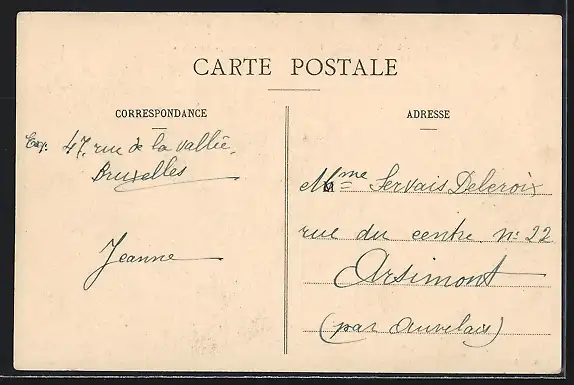 CARTE POSTALE
CORRESPONDANCE
Exp. 47, rue de la vallée,
Bruxelles
Jeanne
ADRESSE
Mme Servais Delcroix
rue du centre, n° 22
Arsimont
(par Auvelais)